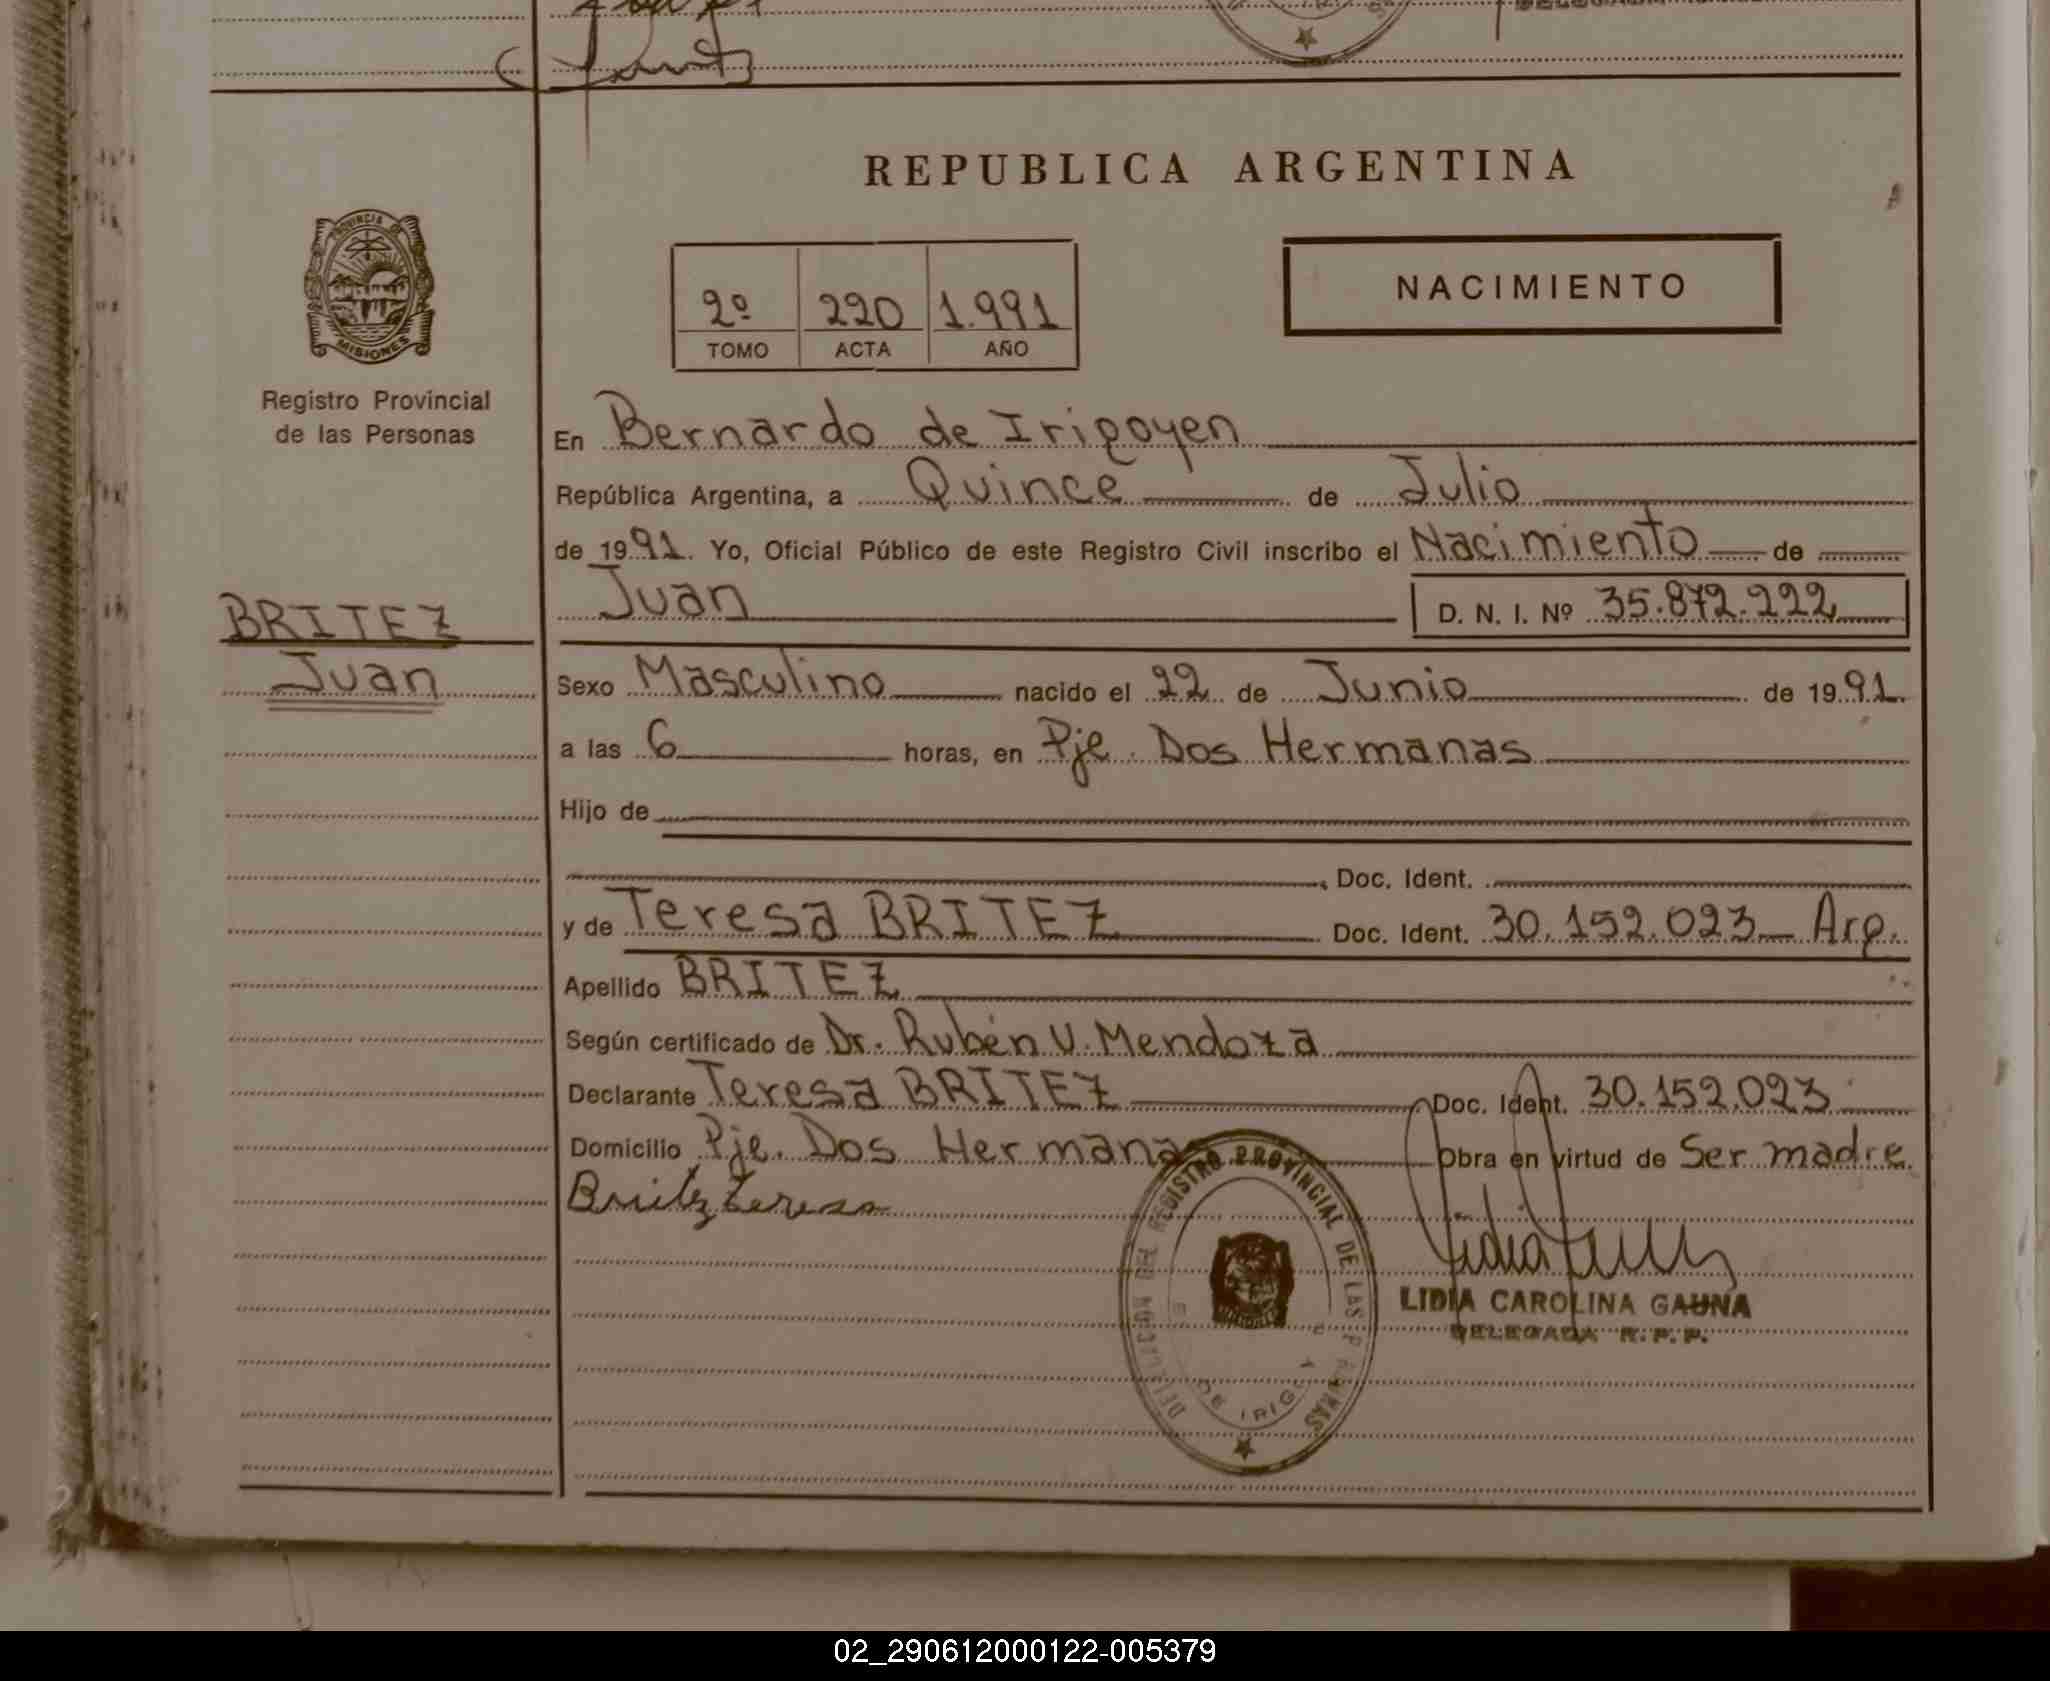 REPUBLICA ARGENTINA
PROVINCIA DE
MISIONES
Registro Provincial
de las Personas
2º 220 1.991
TOMO ACTA AÑO
NACIMIENTO
En Bernardo de Irigoyen
República Argentina, a Quince de Julio
de 1991. Yo, Oficial Público de este Registro Civil inscribo el Nacimiento de
Juan D. N. I. Nº 35.872.222
BRITEZ
Juan
Sexo Masculino nacido el 22 de Junio de 1991
a las 6 horas, en Pje. Dos Hermanas
Hijo de
Doc. Ident.
y de Teresa BRITEZ Doc. Ident. 30.152.023 Arg.
Apellido BRITEZ
Según certificado de Dr. Rubén V. Mendoza
Declarante Teresa BRITEZ Doc. Ident. 30.152.023
Domicilio Pje. Dos Hermanas Obra en virtud de Ser madre
Britez teresa
REGISTRO PROVINCIAL DE LAS
DE IRIG
LIDIA CAROLINA GAUNA
DELEGADA R. P. P.
02_290612000122-005379